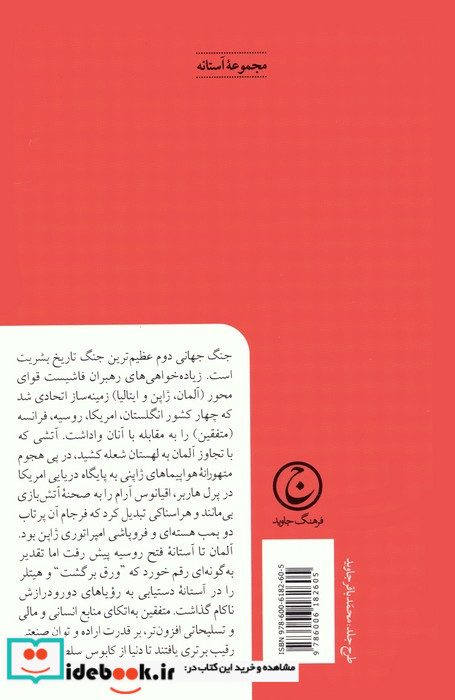 مجموعهٔ آستانه
جنگ جهانی دوم عظیم‌ترین جنگ تاریخ بشریت
است. زیاده‌خواهی‌های رهبران فاشیست قوای
محور (آلمان، ژاپن و ایتالیا) زمینه‌ساز اتحادی شد
که چهار کشور انگلستان، امریکا، روسیه، فرانسه
(متفقین) را به مقابله با آنان واداشت. آتشی که
با تجاوز آلمان به لهستان شعله کشید، در پی هجوم
متهورانهٔ هواپیماهای ژاپنی به پایگاه دریایی امریکا
در پرل هاربر، اقیانوس آرام را به صحنهٔ آتش‌بازی
بی‌مانند و هراسناکی تبدیل کرد که فرجام آن پرتاب
دو بمب هسته‌ای و فروپاشی امپراتوری ژاپن بود.
آلمان تا آستانهٔ فتح روسیه پیش رفت اما تقدیر
به‌گونه‌ای رقم خورد که «ورق برگشت» و هیتلر
را در آستانهٔ دستیابی به رؤیاهای دورودرازش
ناکام گذاشت. متفقین به‌اتکای منابع انسانی و مالی
و تسلیحاتی افزون‌تر، بر قدرت اراده و توان صنعتی
رقیب برتری یافتند تا دنیا از کابوس
فرهنگ جاوید
ISBN 978-600-6182-60-5
9 786006 182605
طرح جلد: محمّدباقر جاوید
idebook.ir
مشاهده و خرید این کتاب در: